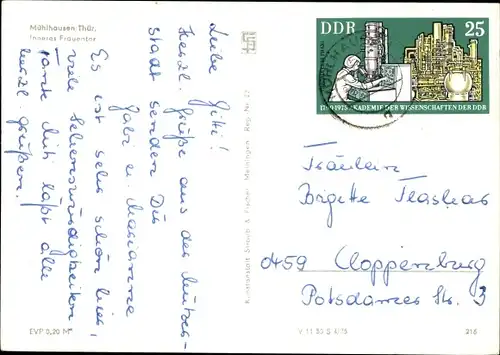 Mühlhausen Thür.
Inneres Frauentor
Liebe Gitti!
Herzl. Grüße aus der
Stadt senden Dir
Gabi u. Marianne
Es ist sehr schön hier,
viele Sehenswürdigkeiten
Tante läßt alle
herzl. grüßen.
EVP 0,20 M
Kunstanstalt Straub & Fischer Meiningen Reg. Nr.
V 11 50 S 6/75
218
DDR 25
1700-1975 AKADEMIE DER WISSENSCHAFTEN DER DDR
Fräulein
Brigitte
0459 Cloppenburg
Potsdamer Str. 3